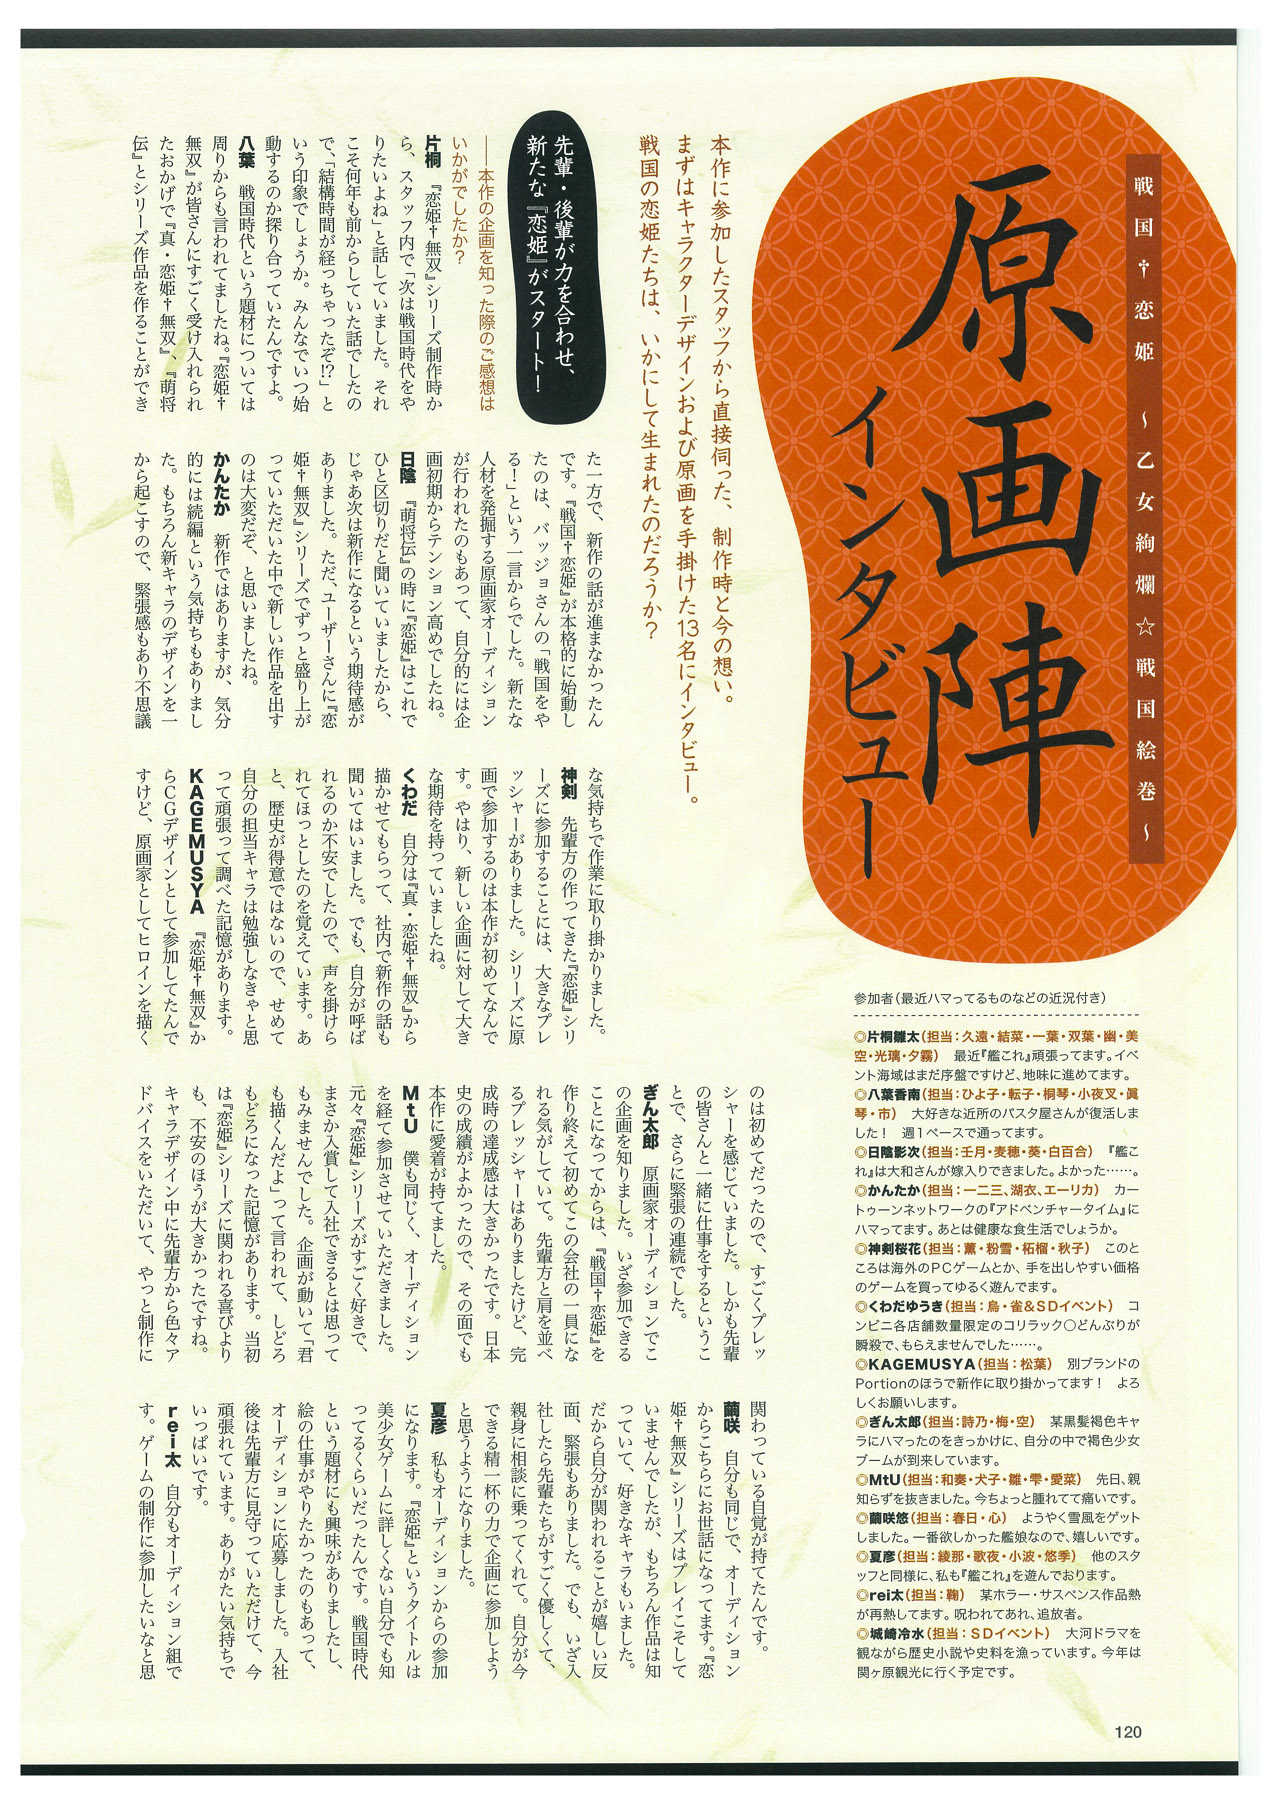 戦国†恋姫 ～乙女絢爛☆戦国絵巻～
原画陣
インタビュー
本作に参加したスタッフから直接伺った、制作時と今の想い。
まずはキャラクターデザインおよび原画を手掛けた13名にインタビュー。
戦国の恋姫たちは、いかにして生まれたのだろうか？
先輩・後輩が力を合わせ、
新たな『恋姫』がスタート！
――本作の企画を知った際のご感想は
いかがでしたか？
片桐　『恋姫†無双』シリーズ制作時か
ら、スタッフ内で「次は戦国時代をや
りたいよね」と話していました。それ
こそ何年も前からしていた話でしたの
で、「結構時間が経っちゃったぞ!?」と
いう印象でしょうか。みんなでいつ始
動するのか探り合っていたんですよ。
八葉　戦国時代という題材については
周りからも言われてましたね。『恋姫†
無双』が皆さんにすごく受け入れられ
たおかげで『真・恋姫†無双』、『萌将
伝』とシリーズ作品を作ることができ
た一方で、新作の話が進まなかったん
です。『戦国†恋姫』が本格的に始動し
たのは、バッジョさんの「戦国をや
る！」という一言からでした。新たな
人材を発掘する原画家オーディション
が行われたのもあって、自分的には企
画初期からテンション高めでしたね。
日陰　『萌将伝』の時に『恋姫』はこれで
ひと区切りだと聞いていましたから、
じゃあ次は新作になるという期待感が
ありました。ただ、ユーザーさんに『恋
姫†無双』シリーズでずっと盛り上が
っていただいた中で新しい作品を出す
のは大変だぞ、と思いましたね。
かんたか　新作ではありますが、気分
的には続編という気持ちもありまし
た。もちろん新キャラのデザインを一
から起こすので、緊張感もあり不思議
な気持ちで作業に取り掛かりました。
神剣　先輩方の作ってきた『恋姫』シリ
ーズに参加することには、大きなプレ
ッシャーがありました。シリーズに原
画で参加するのは本作が初めてなんで
す。やはり、新しい企画に対して大き
な期待を持っていましたね。
くわだ　自分は『真・恋姫†無双』から
描かせてもらって、社内で新作の話も
聞いてはいました。でも、自分が呼ば
れるのか不安でしたので、声を掛けら
れてほっとしたのを覚えています。あ
と、歴史が得意ではないので、せめて
自分の担当キャラは勉強しなきゃと思
って頑張って調べた記憶があります。
KAGEMUSYA　『恋姫†無双』か
らCGデザインとして参加してたんで
すけど、原画家としてヒロインを描く
のは初めてだったので、すごくプレッ
シャーを感じていました。しかも先輩
の皆さんと一緒に仕事をするというこ
とで、さらに緊張の連続でした。
ぎん太郎　原画家オーディションでこ
の企画を知りました。いざ参加できる
ことになってからは、『戦国†恋姫』を
作り終えて初めてこの会社の一員にな
れる気がしていて。先輩方と肩を並べ
るプレッシャーはありましたけど、完
成時の達成感は大きかったです。日本
史の成績がよかったので、その面でも
本作に愛着が持てました。
MtU　僕も同じく、オーディション
を経て参加させていただきました。
元々『恋姫』シリーズがすごく好きで、
まさか入賞して入社できるとは思って
もみませんでした。企画が動いて「君
も描くんだよ」って言われて、しどろ
もどろになった記憶があります。当初
は『恋姫』シリーズに関われる喜びより
も、不安のほうが大きかったですね。
キャラデザイン中に先輩方から色々ア
ドバイスをいただいて、やっと制作に
関わっている自覚が持てたんです。
繭咲　自分も同じで、オーディション
からこちらにお世話になってます。『恋
姫†無双』シリーズはプレイこそして
いませんでしたが、もちろん作品は知
っていて、好きなキャラもいました。
だから自分が関われることが嬉しい反
面、緊張もありました。でも、いざ入
社したら先輩たちがすごく優しくて、
親身に相談に乗ってくれて。自分が今
できる精一杯の力で企画に参加しよう
と思うようになりました。
夏彦　私もオーディションからの参加
になります。『恋姫』というタイトルは
美少女ゲームに詳しくない自分でも知
ってるくらいだったんです。戦国時代
という題材にも興味がありましたし、
絵の仕事がやりたかったのもあって、
オーディションに応募しました。入社
後は先輩方に見守っていただけて、今
頑張れています。ありがたい気持ちで
いっぱいです。
rei太　自分もオーディション組で
す。ゲームの制作に参加したいなと思
参加者（最近ハマってるものなどの近況付き）
◎片桐雛太（担当：久遠・結菜・一葉・双葉・幽・美
空・光璃・夕霧）　最近『艦これ』頑張ってます。イベ
ント海域はまだ序盤ですけど、地味に進めてます。
◎八葉香南（担当：ひよ子・転子・桐琴・小夜叉・眞
琴・市）　大好きな近所のパスタ屋さんが復活しま
した！　週1ペースで通ってます。
◎日陰影次（担当：壬月・麦穂・葵・白百合）　『艦こ
れ』は大和さんが嫁入りできました。よかった……。
◎かんたか（担当：一二三、湖衣、エーリカ）　カー
トゥーンネットワークの『アドベンチャータイム』に
ハマってます。あとは健康な食生活でしょうか。
◎神剣桜花（担当：薫・粉雪・柘榴・秋子）　このと
ころは海外のPCゲームとか、手を出しやすい価格
のゲームを買ってゆるく遊んでます。
◎くわだゆうき（担当：烏・雀&SDイベント）　コ
ンビニ各店舗数量限定のコリラック○どんぶりが
瞬殺で、もらえませんでした……。
◎KAGEMUSYA（担当：松葉）　別ブランドの
Portionのほうで新作に取り掛かってます！　よろ
しくお願いします。
◎ぎん太郎（担当：詩乃・梅・空）　某黒髪褐色キャ
ラにハマったのをきっかけに、自分の中で褐色少女
ブームが到来しています。
◎MtU（担当：和奏・犬子・雛・雫・愛菜）　先日、親
知らずを抜きました。今ちょっと腫れてて痛いです。
◎繭咲悠（担当：春日・心）　ようやく雪風をゲット
しました。一番欲しかった艦娘なので、嬉しいです。
◎夏彦（担当：綾那・歌夜・小波・悠季）　他のスタ
ッフと同様に、私も『艦これ』を遊んでおります。
◎rei太（担当：鞠）　某ホラー・サスペンス作品熱
が再熱してます。呪われてあれ、追放者。
◎城崎冷水（担当：SDイベント）　大河ドラマを
観ながら歴史小説や史料を漁っています。今年は
関ヶ原観光に行く予定です。
120